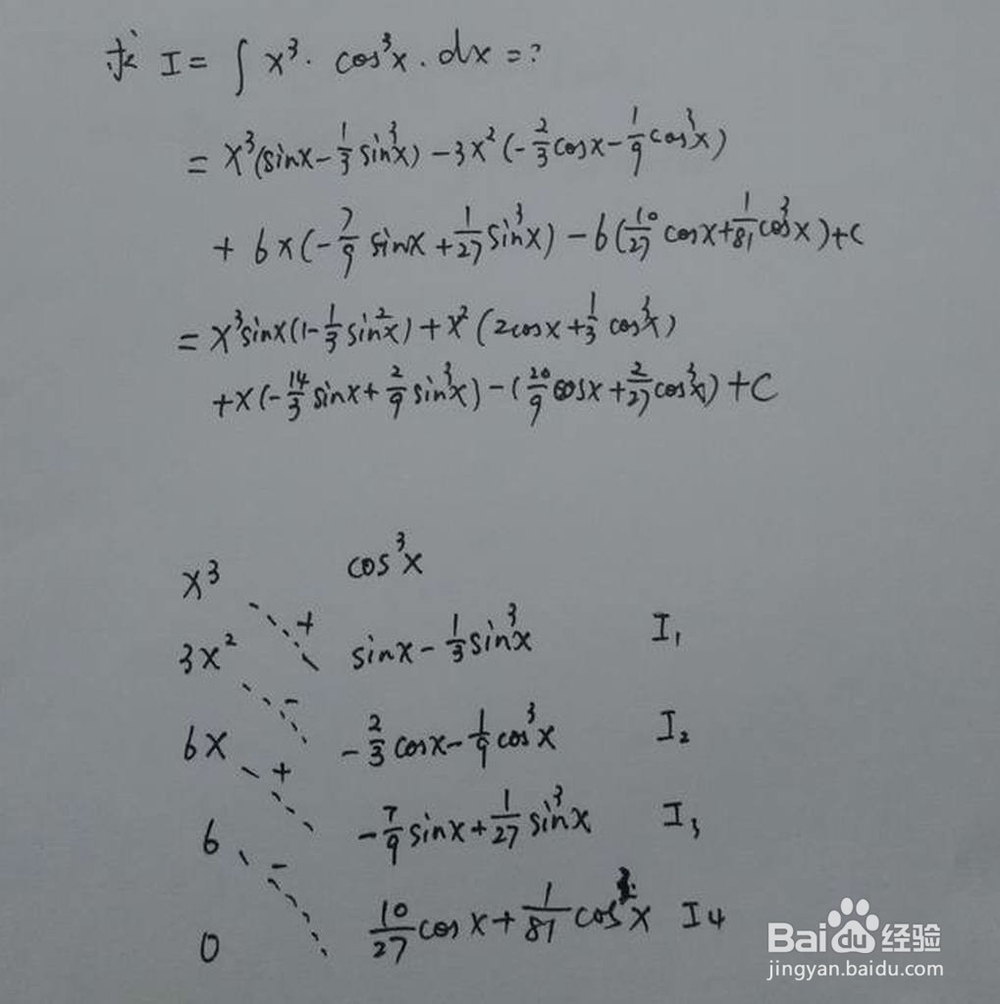 求 I = ∫ x³· cos³x · dx = ?
= x³(sinx - 1/3 sin³x) - 3x²(-2/3 cosx - 1/9 cos³x)
+ 6x(-7/9 sinx + 1/27 sin³x) - 6(10/27 cosx + 1/81 cos³x) + C
= x³sinx(1 - 1/3 sin²x) + x²(2cosx + 1/3 cos³x)
+ x(-14/3 sinx + 2/9 sin³x) - (20/9 cosx + 2/27 cos³x) + C
x³ cos³x
+
3x² sinx - 1/3 sin³x I₁
-
6x -2/3 cosx - 1/9 cos³x I₂
+
6 -7/9 sinx + 1/27 sin³x I₃
-
0 10/27 cosx + 1/81 cos³x I4
Baidu 经验
jingyan.baidu.com